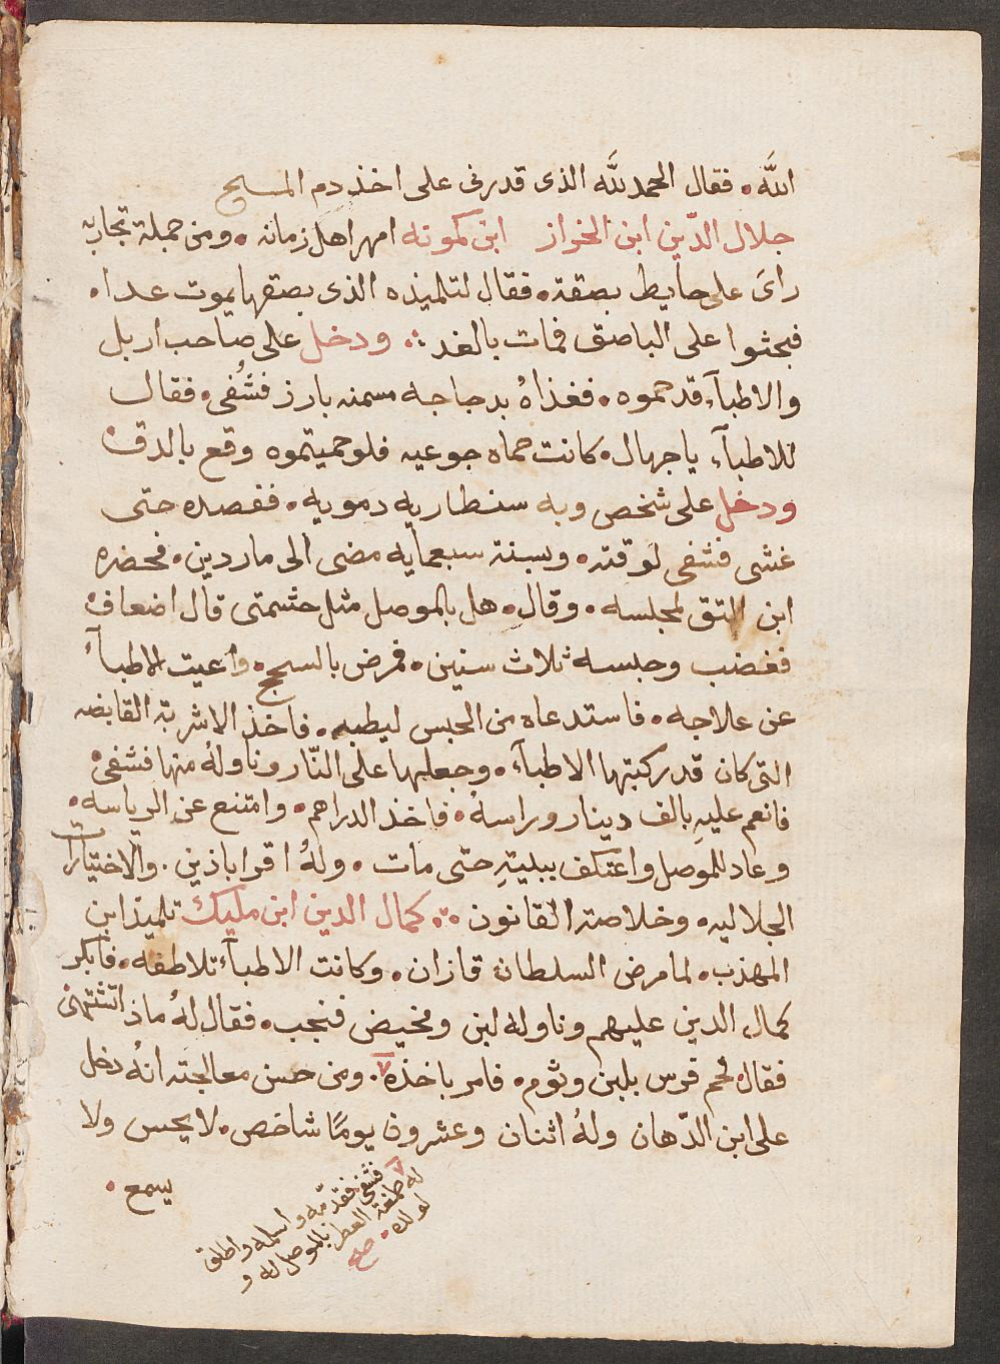 الله. فقال الحمد لله الذى قدرنى على اخذ دم المسيح
جلال الدّين ابن الخواز ابن كمونه امهر اهل زمانه. ومن جملة تجاربه
رائ على حايط بصقة. فقال لتلميذه الذى بصقها يموت غدا.
فبحثوا على الباصق فمات بالغد ؞ ودخل على صاحب اربل
والاطبآء قد حموه. فغذاهُ بدجاجه مسمنه بارز فشُفى. فقال
للاطبآء ياجهال. كانت حماه جوعيه فلو حميتموه وقع بالدق
ودخل على شخص وبه سنطاريه دمويه. ففصده حتى
غشى فشفى لوقته. وبسنة سبعمايه مضى الى ماردين. فحضره
ابن التق لمجلسه. وقال. هل بالموصل مثل حشمتى قال اضعاف
فغضب وحبسه ثلاث سنين. فمرض بالسحج. واعيت الاطبآء
عن علاجه. فاستدعاه من الحبس ليطبه. فاخذ الاشربة القابضه
التى كان قد ركبتها الاطبآء. وجعلها على النّار وناولهُ منها فشفى
فانعم عليهِ بالف دينار وراسهُ. فاخذ الدراهم. وامتنع عن الرياسه.
وعاد للموصل واعتكف ببيتهِ حتى مات. ولهُ اقراباذين. والاختيارات
الجلاليه. وخلاصة القانون ؞ كمال الدين ابن مليك تلميذ ابن
المهذب. لما مرض السلطان قازان. وكانت الاطبآء تلاطفه. فابكر
كمال الدين عليهم وناوله لبن ومخيض فنجب. فقال لهُ ماذا تشتهى
فقال لحم فرس بلبن وثوم. فامر باخذه ٧. ومن حسن معالجته انهُ دخل
على ابن الدّهان ولهُ اثنان وعشرون يومًا شاخص. لا يحس ولا
يسمع.
٧ فشفى فقدمه واسلمه واطلق
له طمغة العطر بالموصل له و
لولده. صح